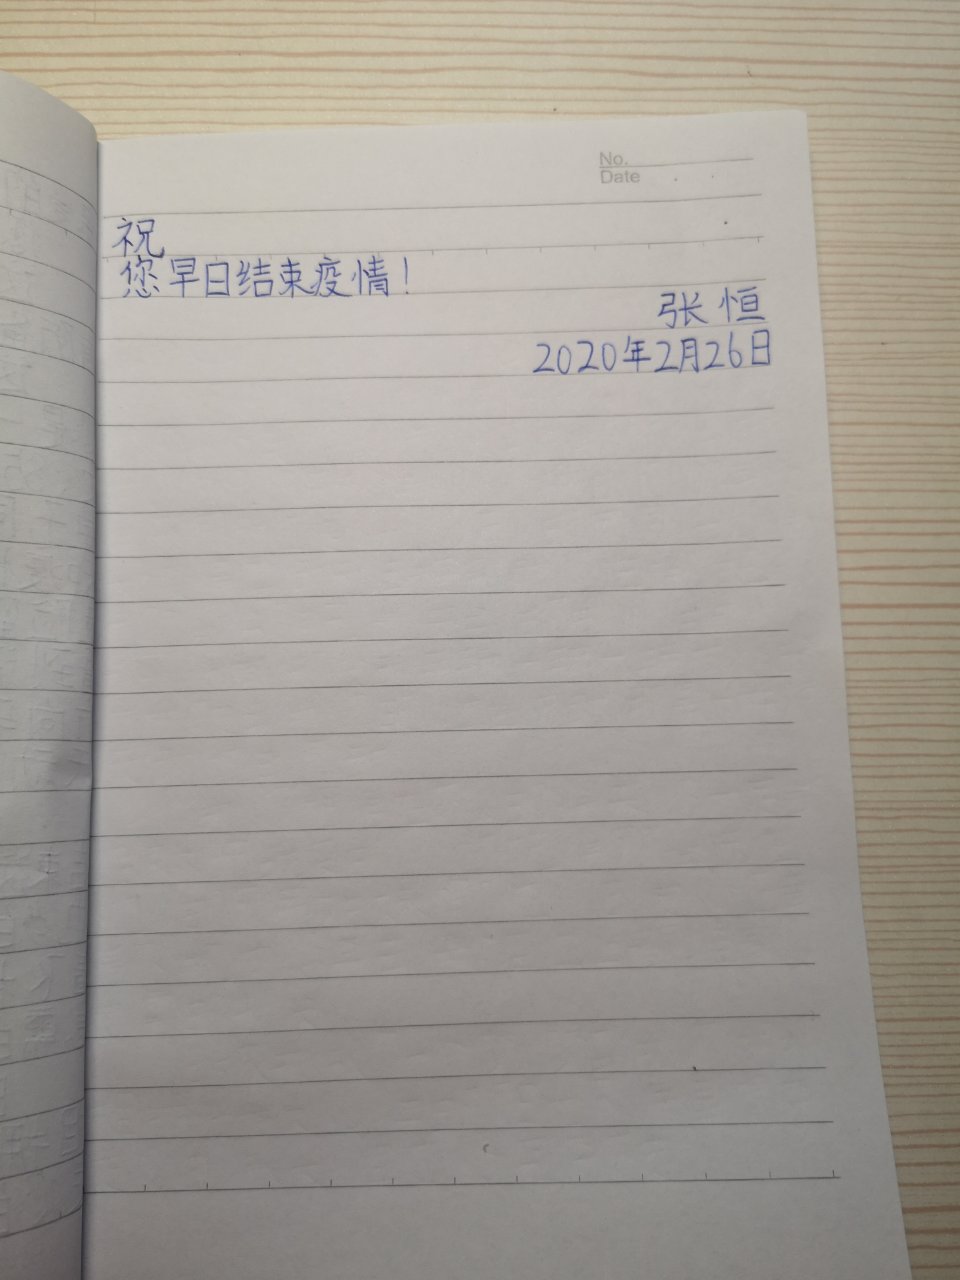 No.
Date
祝
您早日结束疫情！
张恒
2020年2月26日